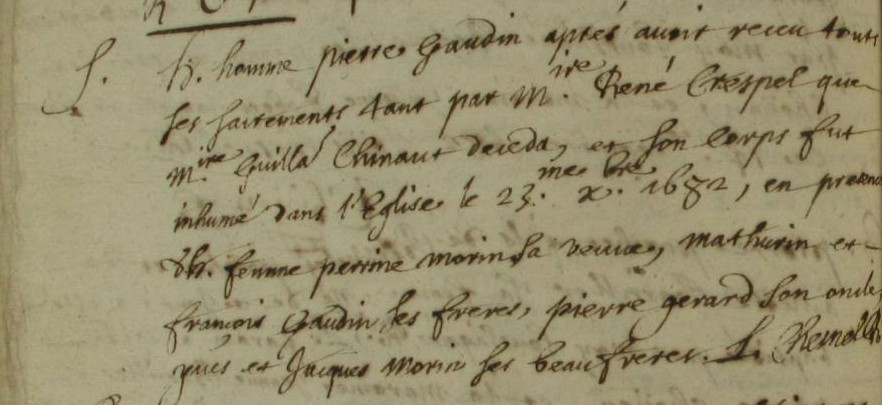 S. h. homme pierre Gaudin aprés avoir receu touts
ses sacrements tant par M.ire René Crespel que
M.ire Guilla. Chinaut deceda, et son corps fut
inhumé dans l'Eglise le 23.me x.bre 1682, en presence
d'h. femme perrine morin sa veuve, mathurin et
françois Gaudin ses freres, pierre gerard son oncle,
et Jacques Morin ses beaufreres.